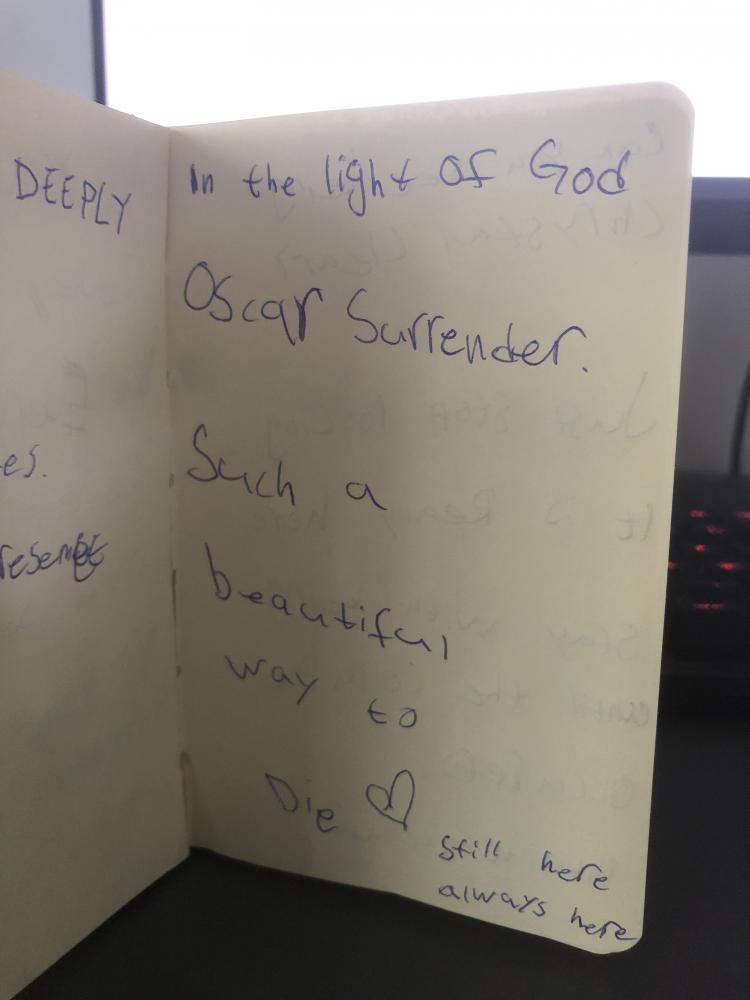 DEEPLY
es.
In the light of God
Oscar Surrender.
Such a
beautiful
way to
Die ♡
still here
always here